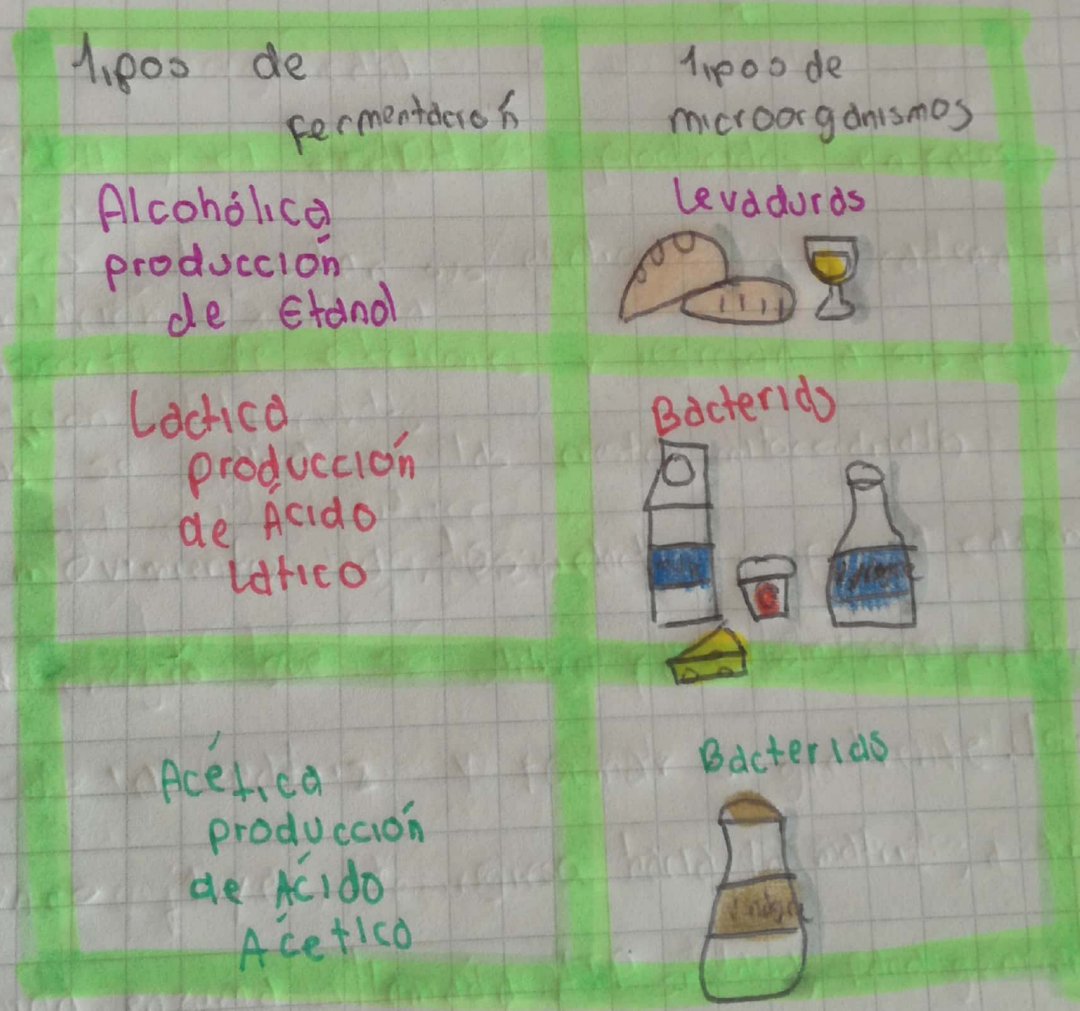 Tipos de
fermentación
Tipos de
microorganismos
Alcohólica
producción
de Etanol
Levaduras
Lactica
producción
de Ácido
Latico
Bacterias
Acética
producción
de Ácido
Ácetico
Bacterias